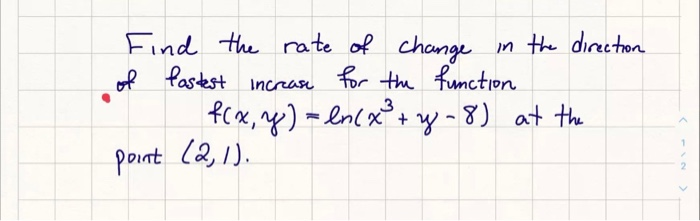 Find the rate of change in the direction
of fastest increase for the function
f(x,y) = ln(x³ + y - 8) at the
point (2,1).
1/2